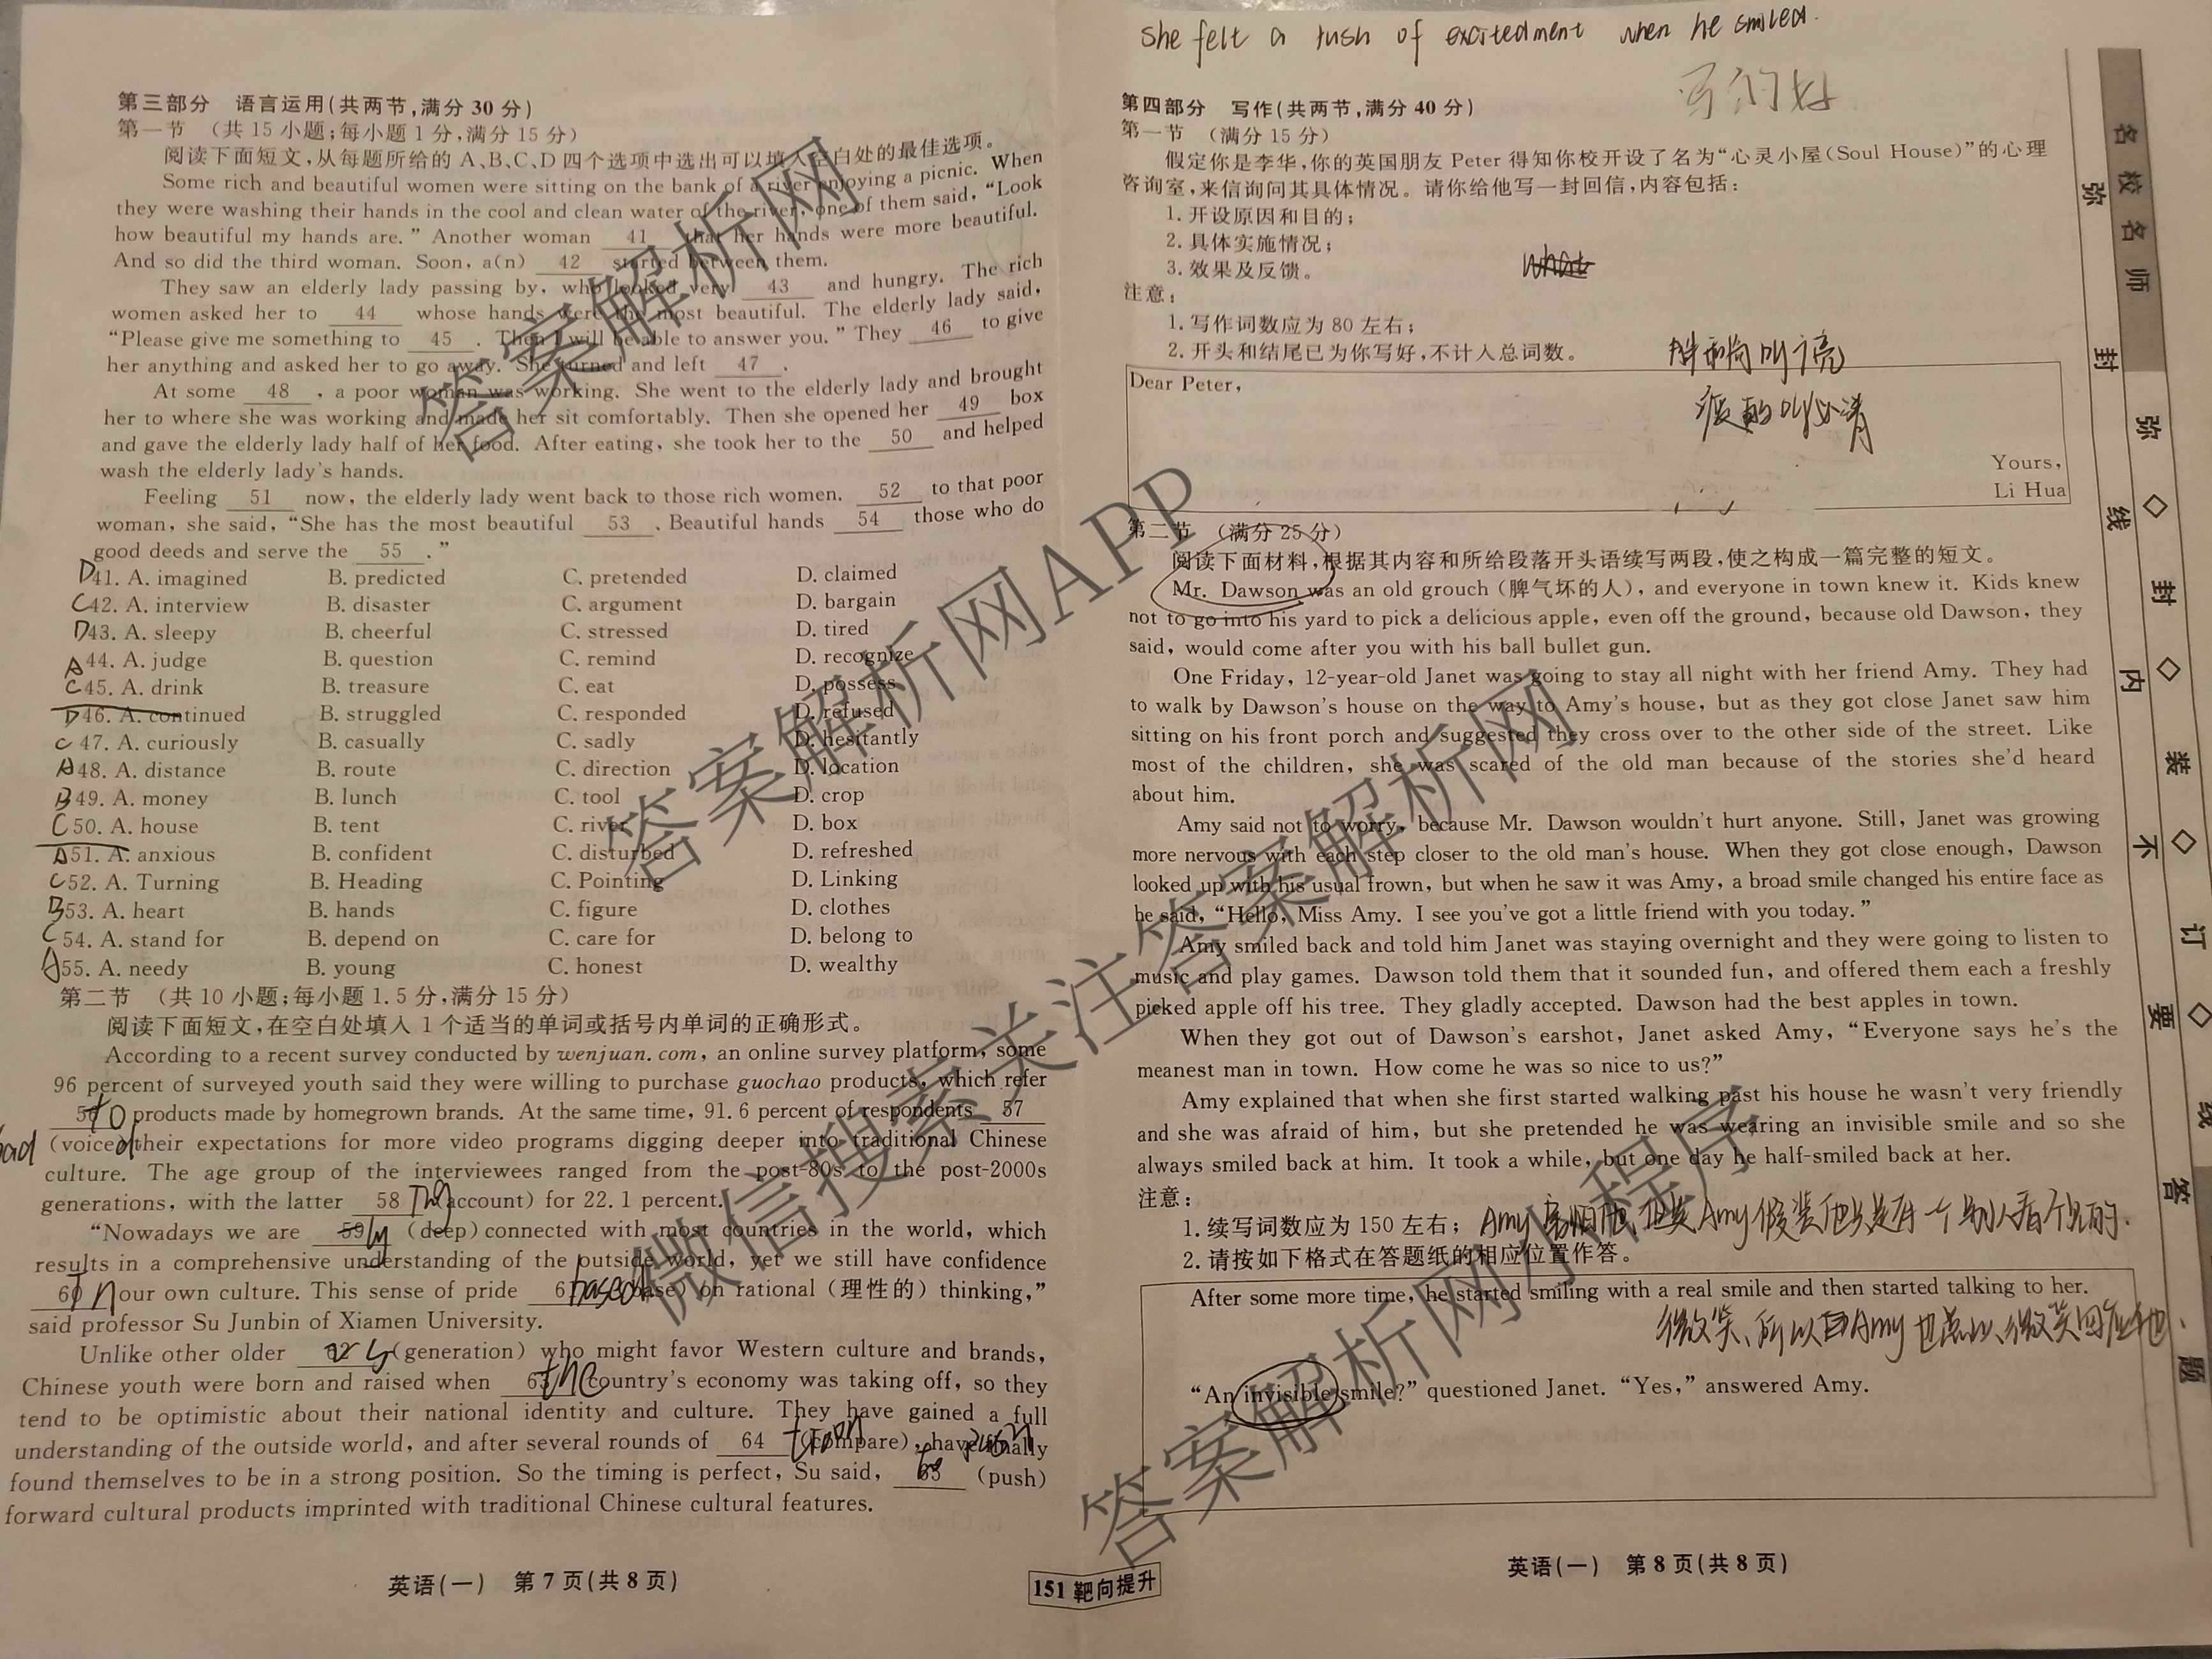 第三部分 语言运用(共两节,满分30分)
第一节 (共15小题;每小题1分,满分15分)
阅读下面短文,从每题所给的A、B、C、D四个选项中选出可以填入空白处的最佳选项。
Some rich and beautiful women were sitting on the bank of a river enjoying a picnic. When
they were washing their hands in the cool and clean water of the river, one of them said, “Look
how beautiful my hands are.” Another woman 41 that her hands were more beautiful.
And so did the third woman. Soon, a(n) 42 started between them.
They saw an elderly lady passing by, who looked very 43 and hungry. The rich
women asked her to 44 whose hands were the most beautiful. The elderly lady said,
“Please give me something to 45 . Then I will be able to answer you.” They 46 to give
her anything and asked her to go away. She turned and left 47 .
At some 48 , a poor woman was working. She went to the elderly lady and brought
her to where she was working and made her sit comfortably. Then she opened her 49 box
and gave the elderly lady half of her food. After eating, she took her to the 50 and helped
wash the elderly lady's hands.
Feeling 51 now, the elderly lady went back to those rich women. 52 to that poor
woman, she said, “She has the most beautiful 53 . Beautiful hands 54 those who do
good deeds and serve the 55 .”
D 41. A. imagined B. predicted C. pretended D. claimed
C 42. A. interview B. disaster C. argument D. bargain
D 43. A. sleepy B. cheerful C. stressed D. tired
A 44. A. judge B. question C. remind D. recognize
C 45. A. drink B. treasure C. eat D. possess
D 46. A. continued B. struggled C. responded D. refused
C 47. A. curiously B. casually C. sadly D. hesitantly
A 48. A. distance B. route C. direction D. location
B 49. A. money B. lunch C. tool D. crop
C 50. A. house B. tent C. river D. box
D 51. A. anxious B. confident C. disturbed D. refreshed
C 52. A. Turning B. Heading C. Pointing D. Linking
B 53. A. heart B. hands C. figure D. clothes
C 54. A. stand for B. depend on C. care for D. belong to
A 55. A. needy B. young C. honest D. wealthy
第二节 (共10小题;每小题1.5分,满分15分)
阅读下面短文,在空白处填入1个适当的单词或括号内单词的正确形式。
According to a recent survey conducted by wenjuan.com, an online survey platform, some
96 percent of surveyed youth said they were willing to purchase guochao products, which refer
56 to products made by homegrown brands. At the same time, 91.6 percent of respondents 57
(voice) d their expectations for more video programs digging deeper into traditional Chinese
culture. The age group of the interviewees ranged from the post-80s to the post-2000s
generations, with the latter 58 ing (account) for 22.1 percent.
“Nowadays we are 59 ly (deep) connected with most countries in the world, which
results in a comprehensive understanding of the outside world, yet we still have confidence
60 in our own culture. This sense of pride 61 based (base) on rational (理性的) thinking,”
said professor Su Junbin of Xiamen University.
Unlike other older 62 s (generation) who might favor Western culture and brands,
Chinese youth were born and raised when 63 the country's economy was taking off, so they
tend to be optimistic about their national identity and culture. They have gained a full
understanding of the outside world, and after several rounds of 64 (compare), have finally
found themselves to be in a strong position. So the timing is perfect, Su said, 65 to push (push)
forward cultural products imprinted with traditional Chinese cultural features.
英语(一) 第7页(共8页)
151 靶向提升
She felt a rush of excitedment when he smiled.
写的好
第四部分 写作(共两节,满分40分)
第一节 (满分15分)
假定你是李华,你的英国朋友Peter得知你校开设了名为“心灵小屋(Soul House)”的心理
咨询室,来信询问其具体情况。请你给他写一封回信,内容包括:
1.开设原因和目的;
2.具体实施情况;
3.效果及反馈。
what
注意:
1.写作词数应为80左右;
2.开头和结尾已为你写好,不计入总词数。
Dear Peter,
Yours,
Li Hua
第二节 (满分25分)
阅读下面材料,根据其内容和所给段落开头语续写两段,使之构成一篇完整的短文。
Mr. Dawson was an old grouch (脾气坏的人), and everyone in town knew it. Kids knew
not to go into his yard to pick a delicious apple, even off the ground, because old Dawson, they
said, would come after you with his ball bullet gun.
One Friday, 12-year-old Janet was going to stay all night with her friend Amy. They had
to walk by Dawson's house on the way to Amy's house, but as they got close Janet saw him
sitting on his front porch and suggested they cross over to the other side of the street. Like
most of the children, she was scared of the old man because of the stories she'd heard
about him.
Amy said not to worry, because Mr. Dawson wouldn't hurt anyone. Still, Janet was growing
more nervous with each step closer to the old man's house. When they got close enough, Dawson
looked up with his usual frown, but when he saw it was Amy, a broad smile changed his entire face as
he said, “Hello, Miss Amy. I see you've got a little friend with you today.”
Amy smiled back and told him Janet was staying overnight and they were going to listen to
music and play games. Dawson told them that it sounded fun, and offered them each a freshly
picked apple off his tree. They gladly accepted. Dawson had the best apples in town.
When they got out of Dawson's earshot, Janet asked Amy, “Everyone says he's the
meanest man in town. How come he was so nice to us?”
Amy explained that when she first started walking past his house he wasn't very friendly
and she was afraid of him, but she pretended he was wearing an invisible smile and so she
always smiled back at him. It took a while, but one day he half-smiled back at her.
注意:
1.续写词数应为150左右;
2.请按如下格式在答题纸的相应位置作答。
After some more time, he started smiling with a real smile and then started talking to her.
微笑、所以Amy也总以微笑回应他、
“An invisible smile?” questioned Janet. “Yes,” answered Amy.
英语(一) 第8页(共8页)
名校名师
弥 封 线 内 不 要 答 题
弥 ◇ 封 ◇ 装 ◇ 订 ◇ 线
答案解析网
答案解析网APP
微信搜索关注答案解析网
答案解析网小程序